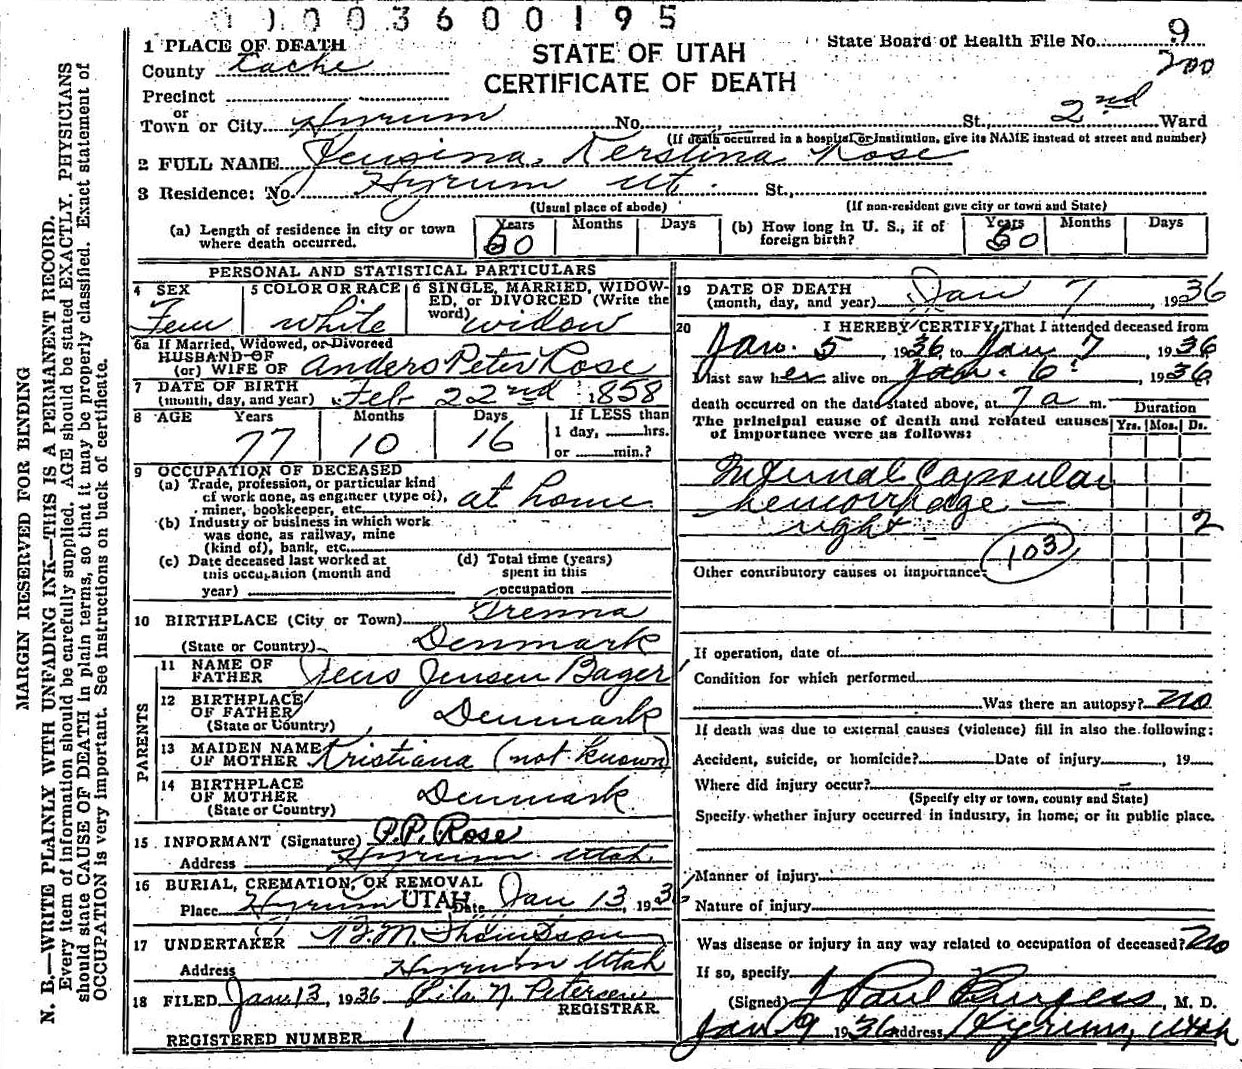 0 0 0 3 6 0 0 1 9 5
MARGIN RESERVED FOR BINDING
N. B.—WRITE PLAINLY WITH UNFADING INK—THIS IS A PERMANENT RECORD.
Every item of information should be carefully supplied. AGE should be stated EXACTLY. PHYSICIANS
should state CAUSE OF DEATH in plain terms, so that it may be properly classified. Exact statement of
OCCUPATION is very important. See instructions on back of certificate.
STATE OF UTAH
CERTIFICATE OF DEATH
State Board of Health File No. 9
200
1 PLACE OF DEATH
County Cache
Precinct
or
Town or City Hyrum No. St., 2nd Ward
(If death occurred in a hospital or institution, give its NAME instead of street and number)
2 FULL NAME Jensina Kerstina Rose
3 Residence: No. Hyrum Ut. St.,
(Usual place of abode) (If non-resident give city or town and State)
(a) Length of residence in city or town where death occurred. Years 60 Months Days
(b) How long in U. S., if of foreign birth? Years 60 Months Days
PERSONAL AND STATISTICAL PARTICULARS
4 SEX Fem
5 COLOR OR RACE white
6 SINGLE, MARRIED, WIDOWED, or DIVORCED (Write the word) widow
6a If Married, Widowed, or Divorced
HUSBAND OF
(or) WIFE OF Anders Peter Rose
7 DATE OF BIRTH
(month, day, and year) Feb 22nd 1858
8 AGE Years 77 Months 10 Days 16
If LESS than
1 day, hrs.
or min.?
9 OCCUPATION OF DECEASED
(a) Trade, profession, or particular kind
of work done, as engineer (type of),
miner, bookkeeper, etc. at home
(b) Industry or business in which work
was done, as railway, mine
(kind of), bank, etc.
(c) Date deceased last worked at
this occupation (month and
year)
(d) Total time (years)
spent in this
occupation
10 BIRTHPLACE (City or Town)
(State or Country) Denmark
PARENTS
11 NAME OF FATHER Jens Jensen Bager
12 BIRTHPLACE OF FATHER
(State or Country) Denmark
13 MAIDEN NAME OF MOTHER Kristiana (not known)
14 BIRTHPLACE OF MOTHER
(State or Country) Denmark
15 INFORMANT (Signature) P.P. Rose
Address Hyrum Utah.
16 BURIAL, CREMATION, OR REMOVAL
Place Hyrum UTAH Date Jan 13, 1936
17 UNDERTAKER M. Thomsson
Address Hyrum Utah
18 FILED Jan 13, 1936 N. Petersen
REGISTRAR.
REGISTERED NUMBER 1
19 DATE OF DEATH
(month, day, and year) Jan 7, 1936
20 I HEREBY CERTIFY, That I attended deceased from
Jan. 5, 1936, to Jan 7, 1936
I last saw her alive on Jan. 6, 1936
death occurred on the date stated above, at 7 a m.
The principal cause of death and related causes
of importance were as follows:
Duration
Yrs. Mos. Ds.
Internal Capsular
hemorrhage —
right 2
103
Other contributory causes of importance:
If operation, date of
Condition for which performed
Was there an autopsy? no
If death was due to external causes (violence) fill in also the following:
Accident, suicide, or homicide? Date of injury , 19
Where did injury occur?
(Specify city or town, county and State)
Specify whether injury occurred in industry, in home, or in public place.
Manner of injury
Nature of injury
Was disease or injury in any way related to occupation of deceased? no
If so, specify
(Signed) J Paul Burgess, M. D.
Jan 9 1936 Address Hyrum, Utah